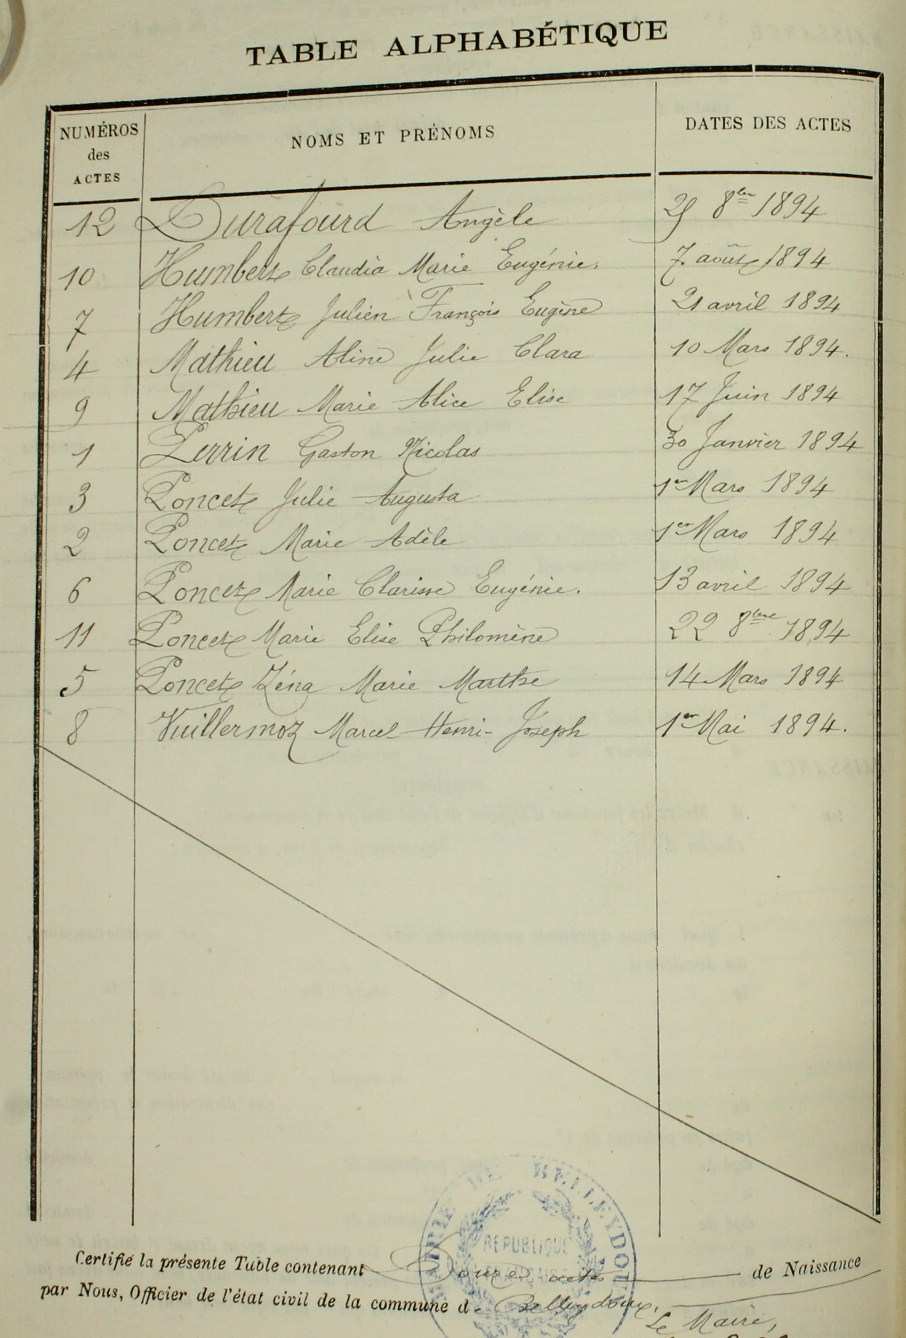 TABLE ALPHABÉTIQUE
NUMÉROS des ACTES NOMS ET PRÉNOMS DATES DES ACTES
12 Durafourd Angèle 8bre 1894
10 Humbert Claudia Marie Eugénie. 7 août 1894
7 Humbert Julien François Eugène 21 avril 1894
4 Mathieu Aline Julie Clara 10 Mars 1894.
9 Mathieu Marie Alice Elise 17 Juin 1894
1 Perrin Gaston Nicolas 30 Janvier 1894
3 Poncet Julie Augusta 1er Mars 1894
2 Poncet Marie Adèle 1er Mars 1894
6 Poncet Marie Clarisse Eugénie. 13 avril 1894
11 Poncet Marie Elise Philomène 22 8bre 1894
5 Poncet Zéna Marie Marthe 14 Mars 1894
8 Vuillermoz Marcel Henri-Joseph 1er Mai 1894.
MAIRIE DE BELLEYDOUX
RÉPUBLIQUE
Certifié la présente Table contenant Douze actes de Naissance
par Nous, Officier de l'état civil de la commune d Belleydoux.
Le Maire,